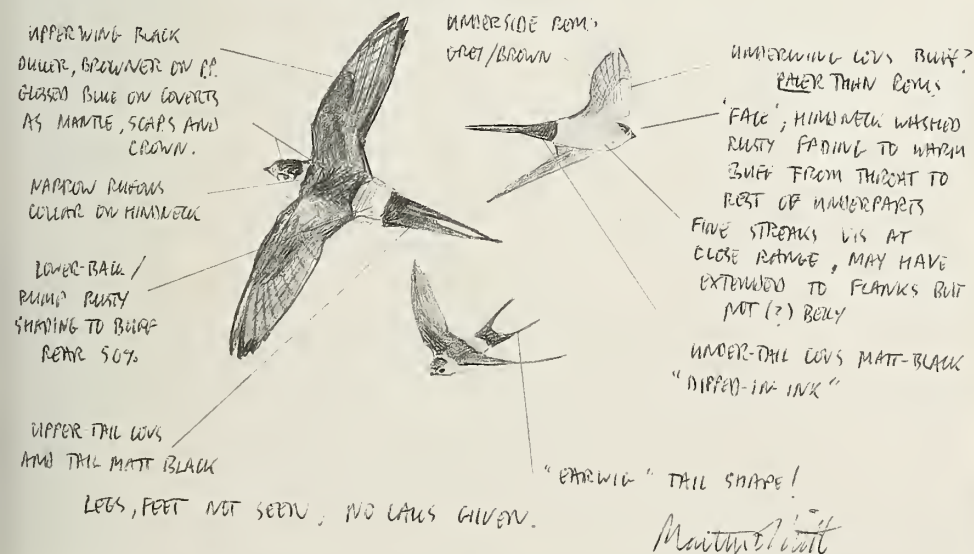 UPPERWING BLACK
DULLER, BROWNER ON P.P.
GLOSSED BLUE ON COVERTS
AS MANTLE, SCAPS AND
CROWN.
NARROW RUFOUS
COLLAR ON HINDNECK
LOWER-BACK /
RUMP RUSTY
SHADING TO BUFF
REAR 50%
UPPER-TAIL COVS
AND TAIL MATT BLACK
LEGS, FEET NOT SEEN, NO CALLS GIVEN.
UNDERSIDE REMS
GREY/BROWN
UNDERWING COVS BUFF?
PALER THAN REMS
'FACE', HINDNECK WASHED
RUSTY FADING TO WARM
BUFF FROM THROAT TO
REST OF UNDERPARTS
FINE STREAKS VIS AT
CLOSE RANGE, MAY HAVE
EXTENDED TO FLANKS BUT
NOT (?) BELLY
UNDER-TAIL COVS MATT-BLACK
"DIPPED-IN-INK"
"EARWIG" TAIL SHAPE!